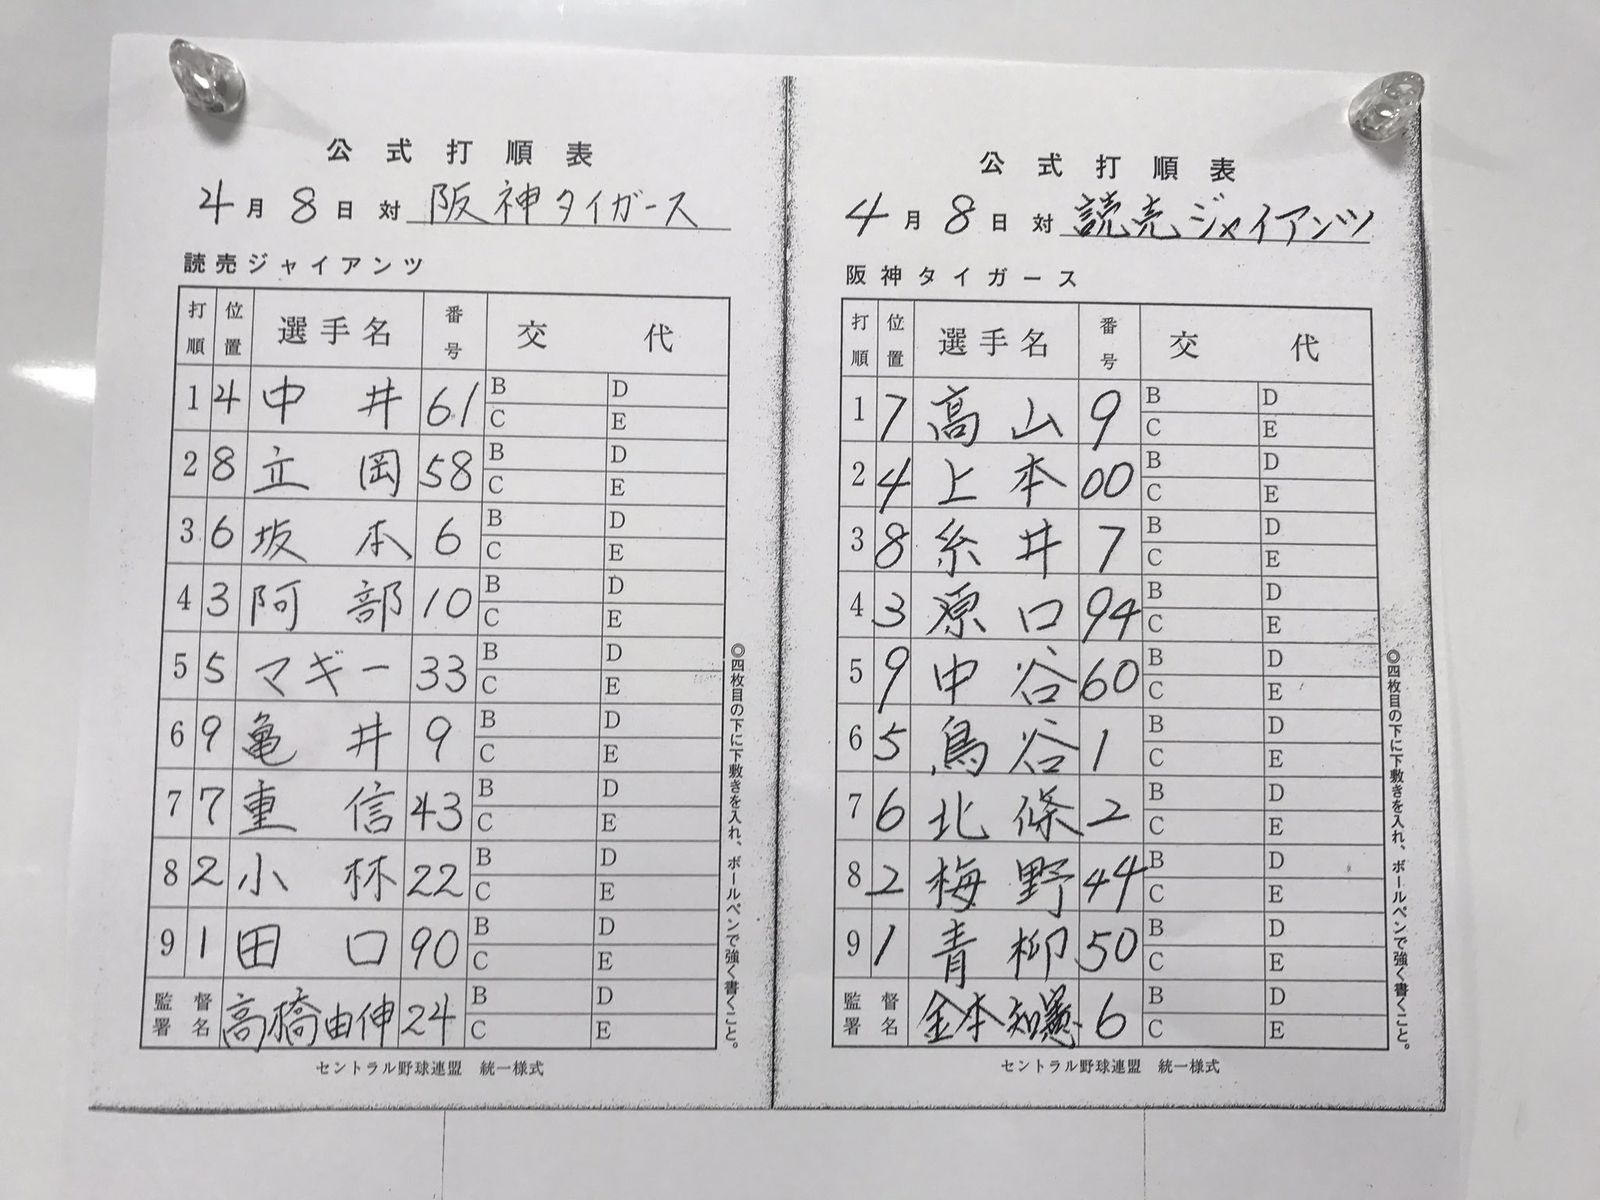 公式打順表
4月8日 対 阪神タイガース
読売ジャイアンツ
打順 位置 選手名 番号 交代
1 4 中井 61 B D C E
2 8 立岡 58 B D C E
3 6 坂本 6 B D C E
4 3 阿部 10 B D C E
5 5 マギー 33 B D C E
6 9 亀井 9 B D C E
7 7 重信 43 B D C E
8 2 小林 22 B D C E
9 1 田口 90 B D C E
監督署名 高橋由伸 24 B D C E
セントラル野球連盟 統一様式
◎四枚目の下に下敷きを入れ、ボールペンで強く書くこと。
公式打順表
4月8日 対 読売ジャイアンツ
阪神タイガース
打順 位置 選手名 番号 交代
1 7 高山 9 B D C E
2 4 上本 00 B D C E
3 8 糸井 7 B D C E
4 3 原口 94 B D C E
5 9 中谷 60 B D C E
6 5 鳥谷 1 B D C E
7 6 北條 2 B D C E
8 2 梅野 44 B D C E
9 1 青柳 50 B D C E
監督署名 金本知憲 6 B D C E
セントラル野球連盟 統一様式
◎四枚目の下に下敷きを入れ、ボールペンで強く書くこと。